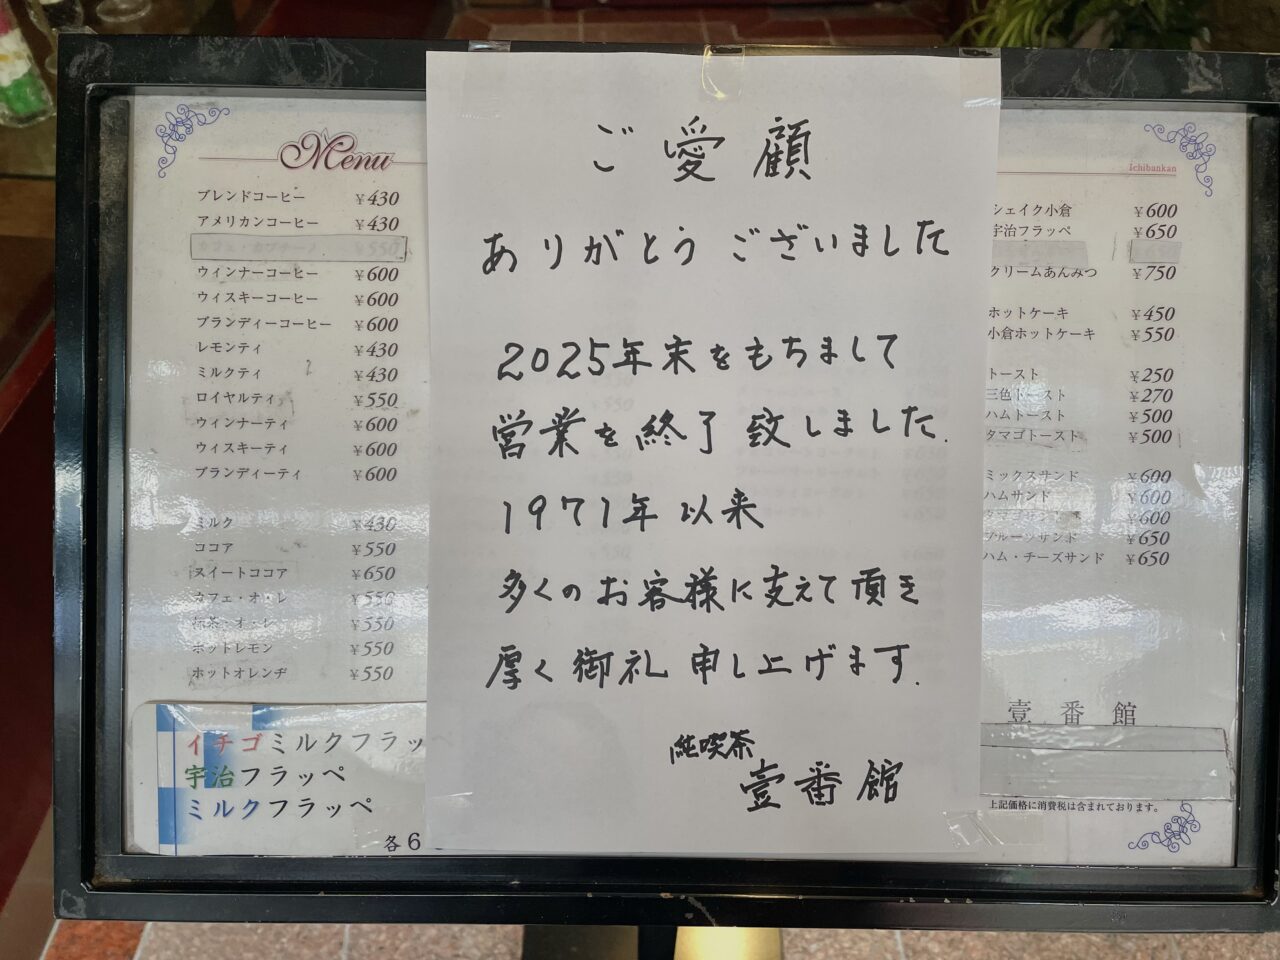 Menu
ブレンドコーヒー ¥430
アメリカンコーヒー ¥430
カフェ・カプチーノ ¥550
ウィンナーコーヒー ¥600
ウィスキーコーヒー ¥600
ブランディーコーヒー ¥600
レモンティ ¥430
ミルクティ ¥430
ロイヤルティ ¥550
ウィンナーティ ¥600
ウィスキーティ ¥600
ブランディーティ ¥600
ミルク ¥430
ココア ¥550
スイートココア ¥650
カフェ・オ・レ ¥550
抹茶・オ・レ ¥550
ホットレモン ¥550
ホットオレンヂ ¥550
イチゴミルクフラッ
宇治フラッペ
ミルクフラッペ
各6
ご愛顧
ありがとうございました
2025年末をもちまして
営業を終了致しました.
1971年以来
多くのお客様に支えて頂き
厚く御礼申し上げます.
純喫茶
壹番館
Ichibankan
シェイク小倉 ¥600
宇治フラッペ ¥650
クリームあんみつ ¥750
ホットケーキ ¥450
小倉ホットケーキ ¥550
トースト ¥250
三色トースト ¥270
ハムトースト ¥500
タマゴトースト ¥500
ミックスサンド ¥600
ハムサンド ¥600
タマゴサンド ¥600
フルーツサンド ¥650
ハム・チーズサンド ¥650
壹番館
上記価格に消費税は含まれております。